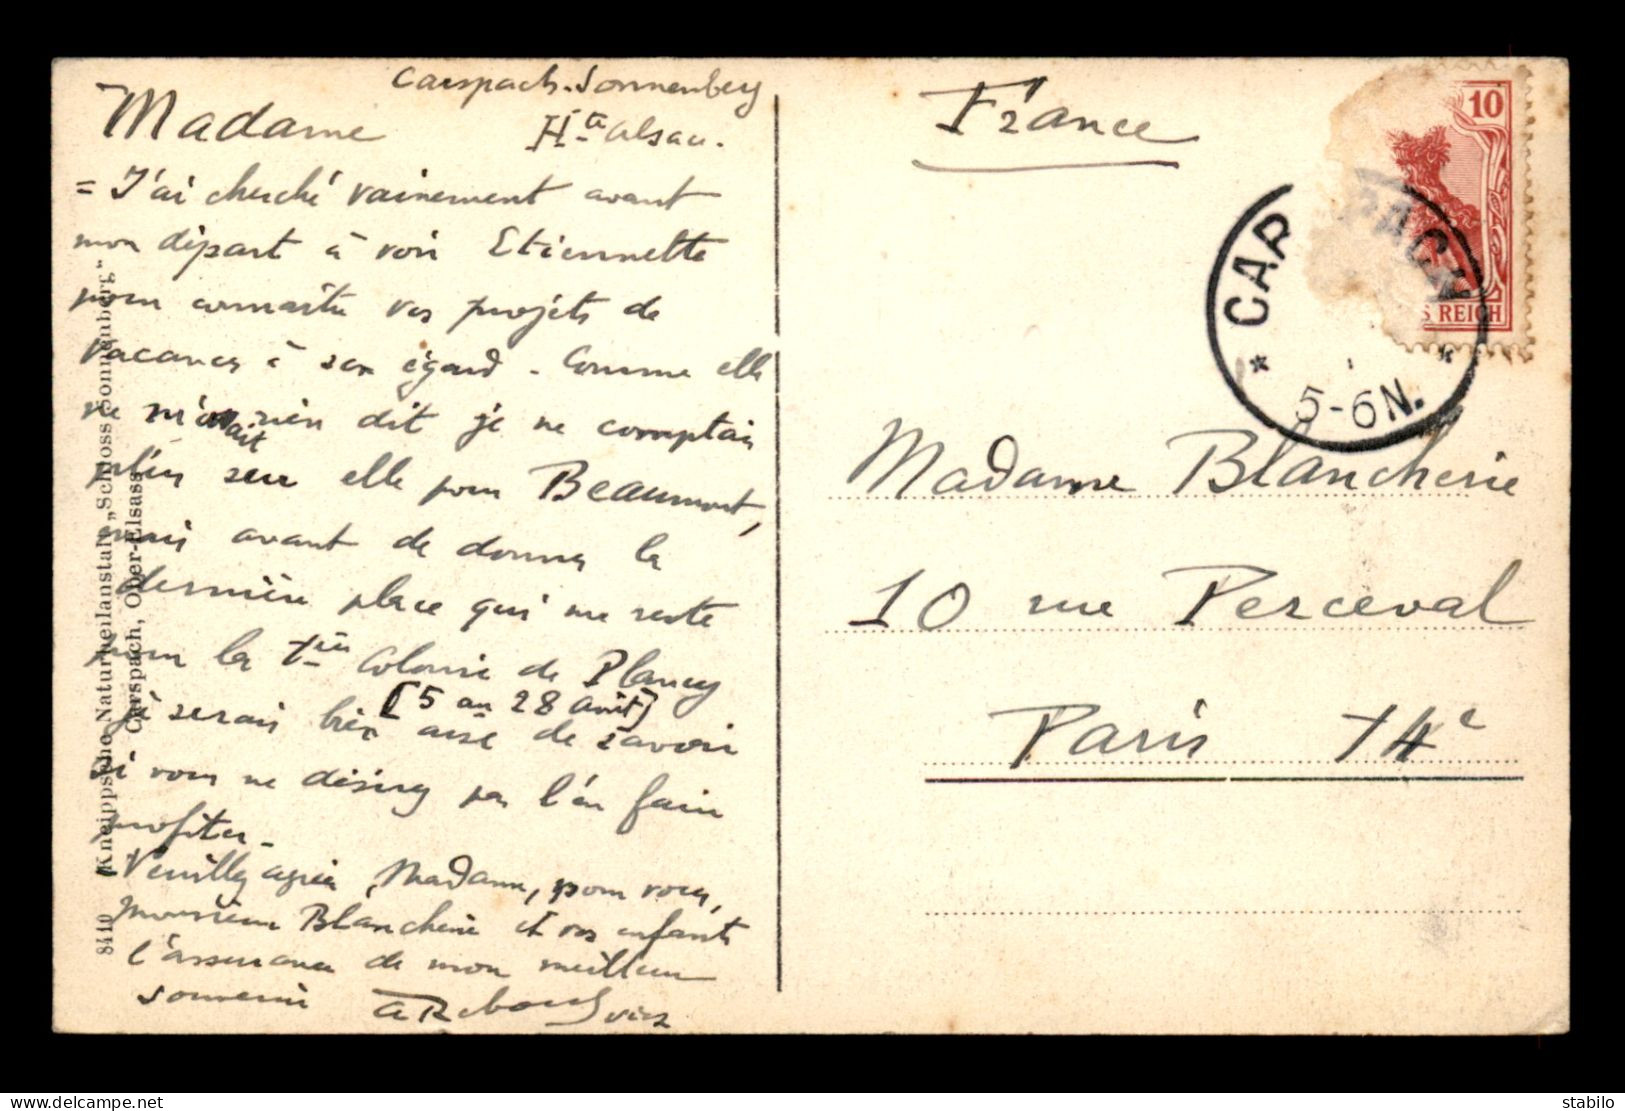 Carspach-Sonnenberg
Hte Alsace.
Madame
= J'ai cherché vainement avant
mon départ à voir Etiennette
pour connaitre vos projets de
vacances à son égard - Comme elle
ne m'avait rien dit je ne comptais
plus sur elle pour Beaumont,
mais avant de donner la
dernière place qui me reste
pour la 1ère Colonie de Plancy
[5 au 28 août]
je serais bien aise de savoir
si vous ne désirez pas l'en faire
profiter -
Veuillez agréer, Madame, pour vous,
monsieur Blancherie et vos enfants
l'assurance de mon meilleur
souvenir
8440 Kneippsche Naturheilanstalt „Schloss Sonnenberg"
Carspach, Ober-Elsass
France
10
S REICH
CAR PACH
5-6N.
Madame Blancherie
10 rue Perceval
Paris 14e
delcampe.net
stabilo